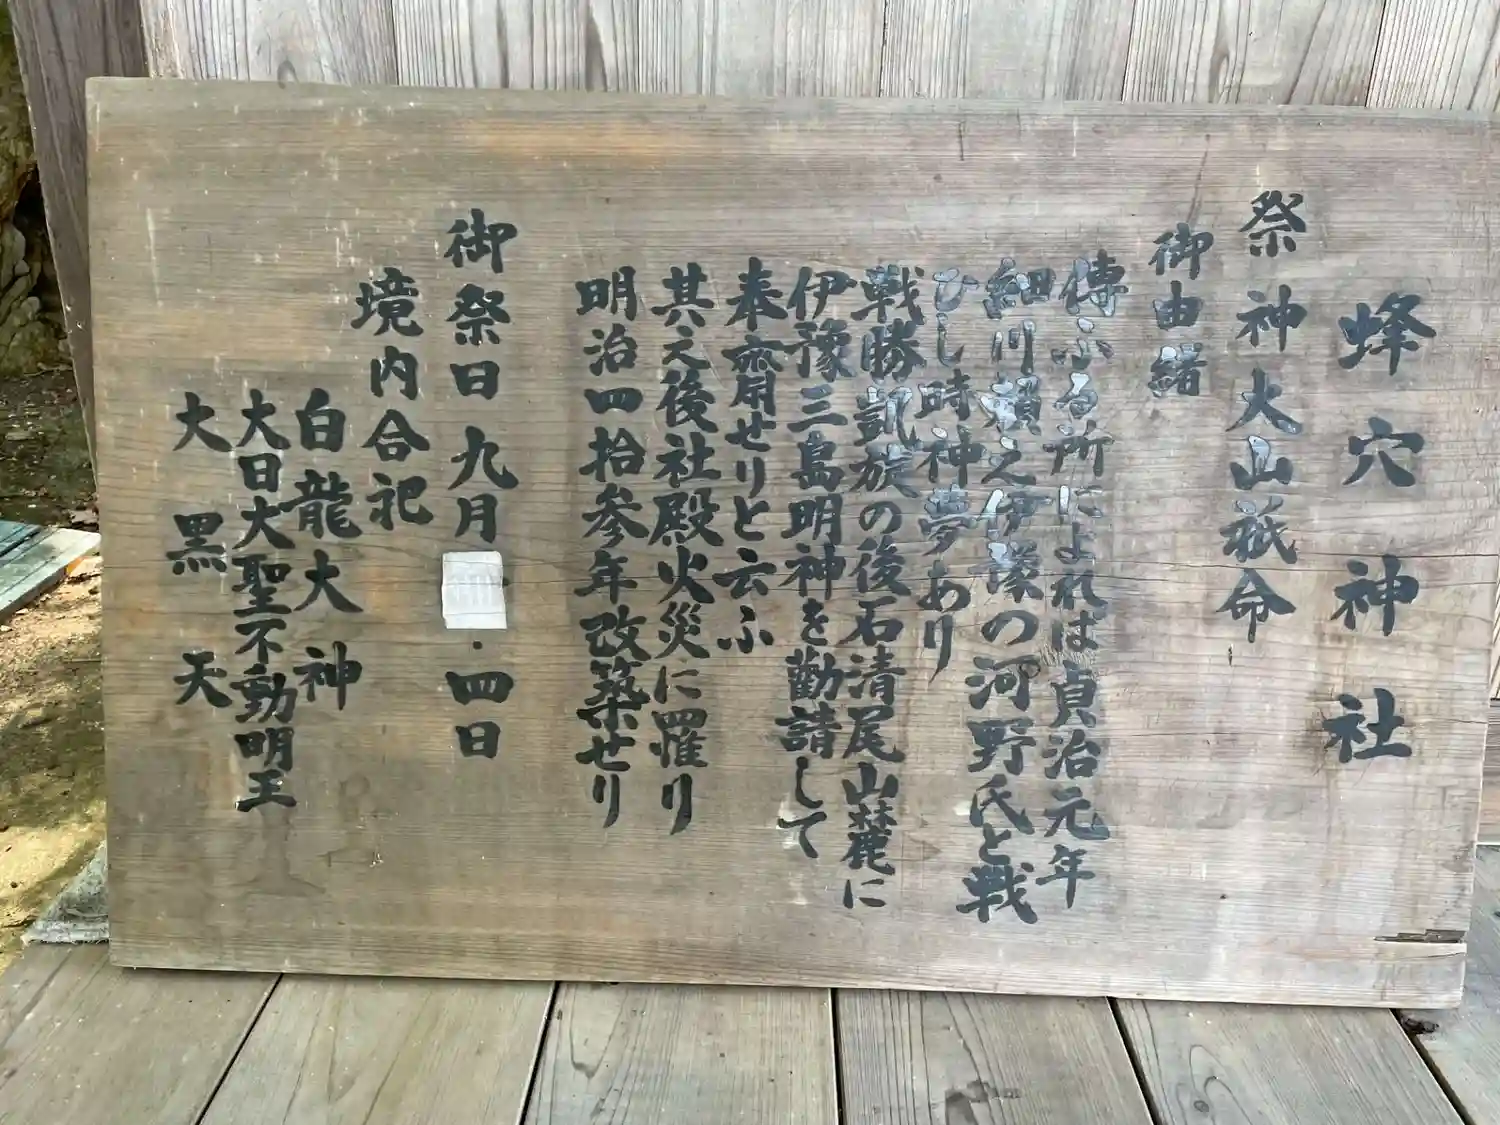 蜂穴神社
祭神 大山祇命
御由緒
傳ふる所によれは貞治元年
細川頼之伊豫の河野氏と戦
ひし時神夢あり
戦勝凱旋の後石清尾山麓に
伊豫三島明神を勸請して
奉齋せりと云ふ
其之後社殿火災に罹り
明治四拾参年改築せり
御祭日 九月 ・四日
境内合祀
白龍大神
大日大聖不動明王
大黒天